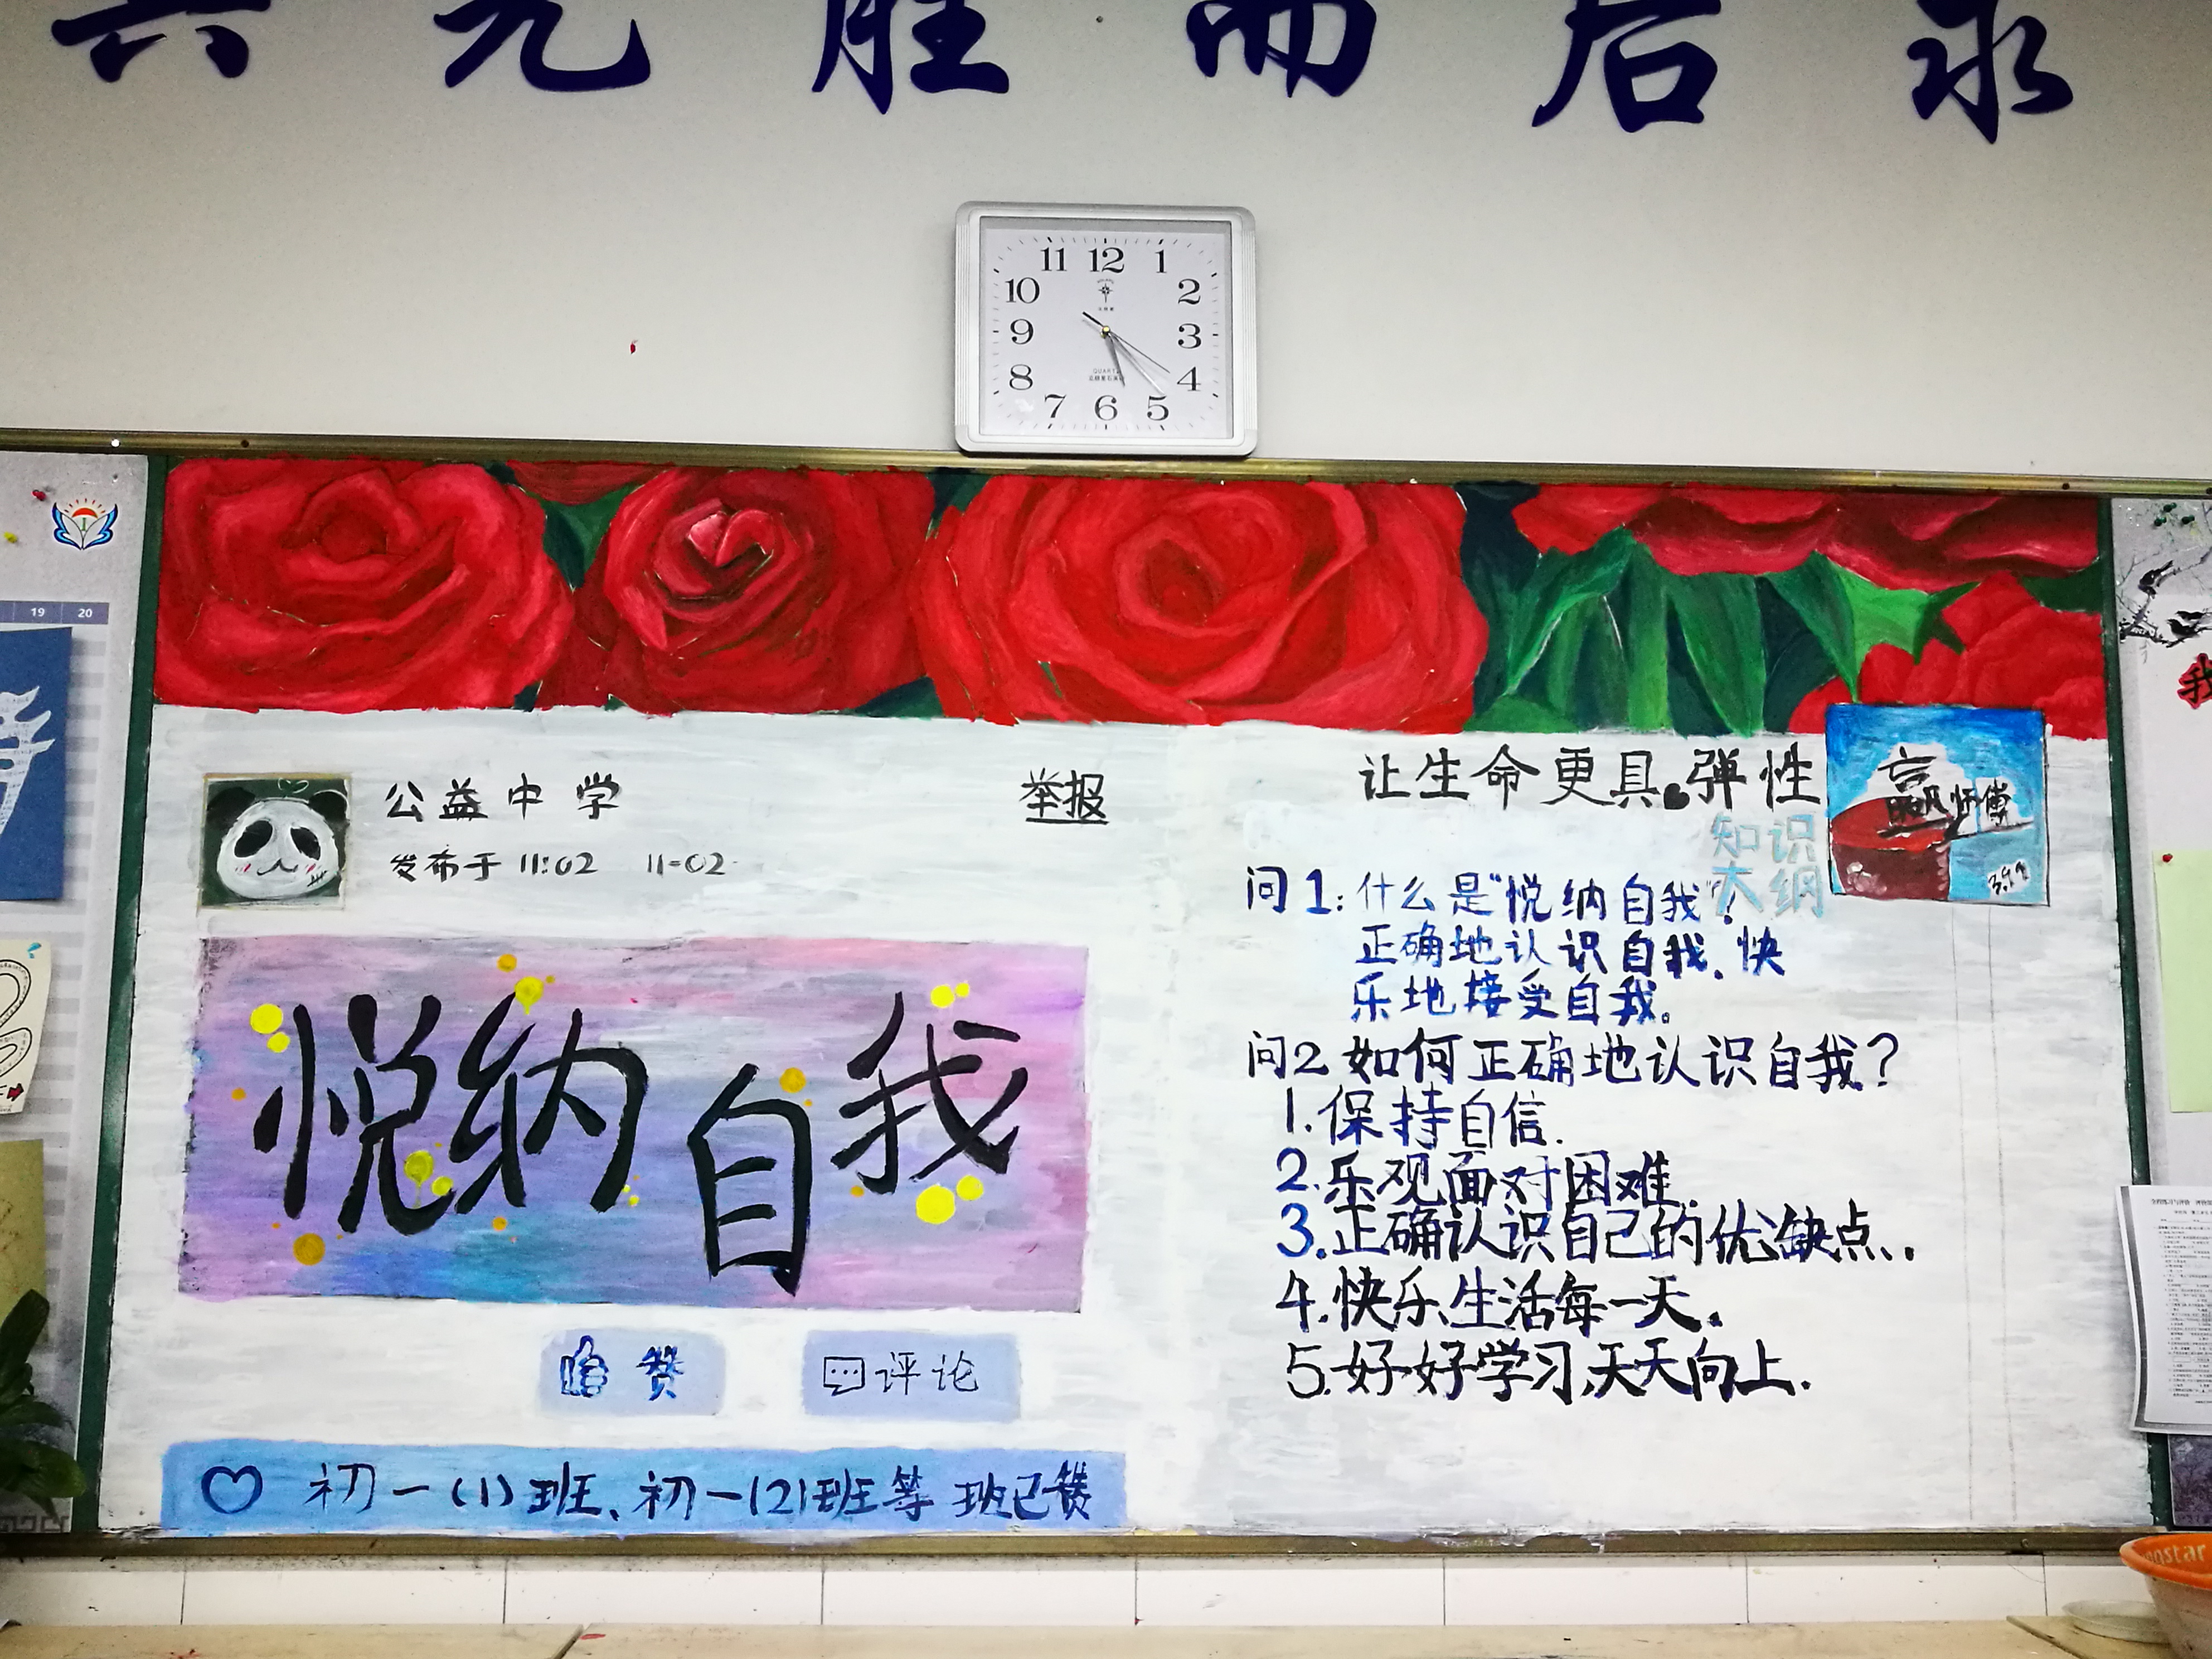 先胜而后求
11 12 1
10 2
9 3
8 4
7 6 5
QUARTZ
19 20
公益中学
举报
发布于 11:02 11-02
悦纳自我
赞
评论
初一(1)班、初一(2)班等 班已赞
让生命更具弹性
知识
大纲
赢师傅
问1:什么是"悦纳自我"?
正确地认识自我、快
乐地接受自我。
问2如何正确地认识自我?
1.保持自信.
2.乐观面对困难.
3.正确认识自己的优缺点.
4.快乐生活每一天.
5.好好学习,天天向上.
我